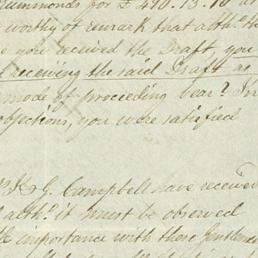 rummonds for £ 490.13.10 as
worthy of remark that altho. th
you received the Draft, you
receiving the said Draft as
mode of proceeding bear? In
objections, you were satisfied
J & G. Campbell have received
altho. it must be observed
importance with these Gentlem